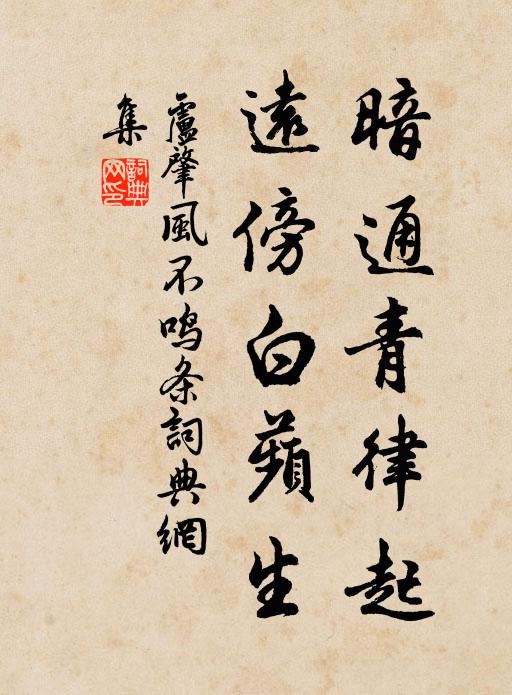 暗通青律起
遠傍白蘋生
盧肇風不鸣条詞典網
集
詞典网印